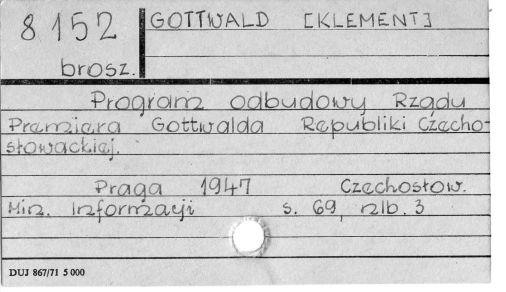 8 152
brosz.
GOTTWALD [KLEMENT]
Program odbudowy Rządu
Premiera Gottwalda Republiki Czecho-
słowackiej.
Praga 1947 Czechosłow.
Min. Informacji s. 69, nlb. 3
DUJ 867/71 5 000